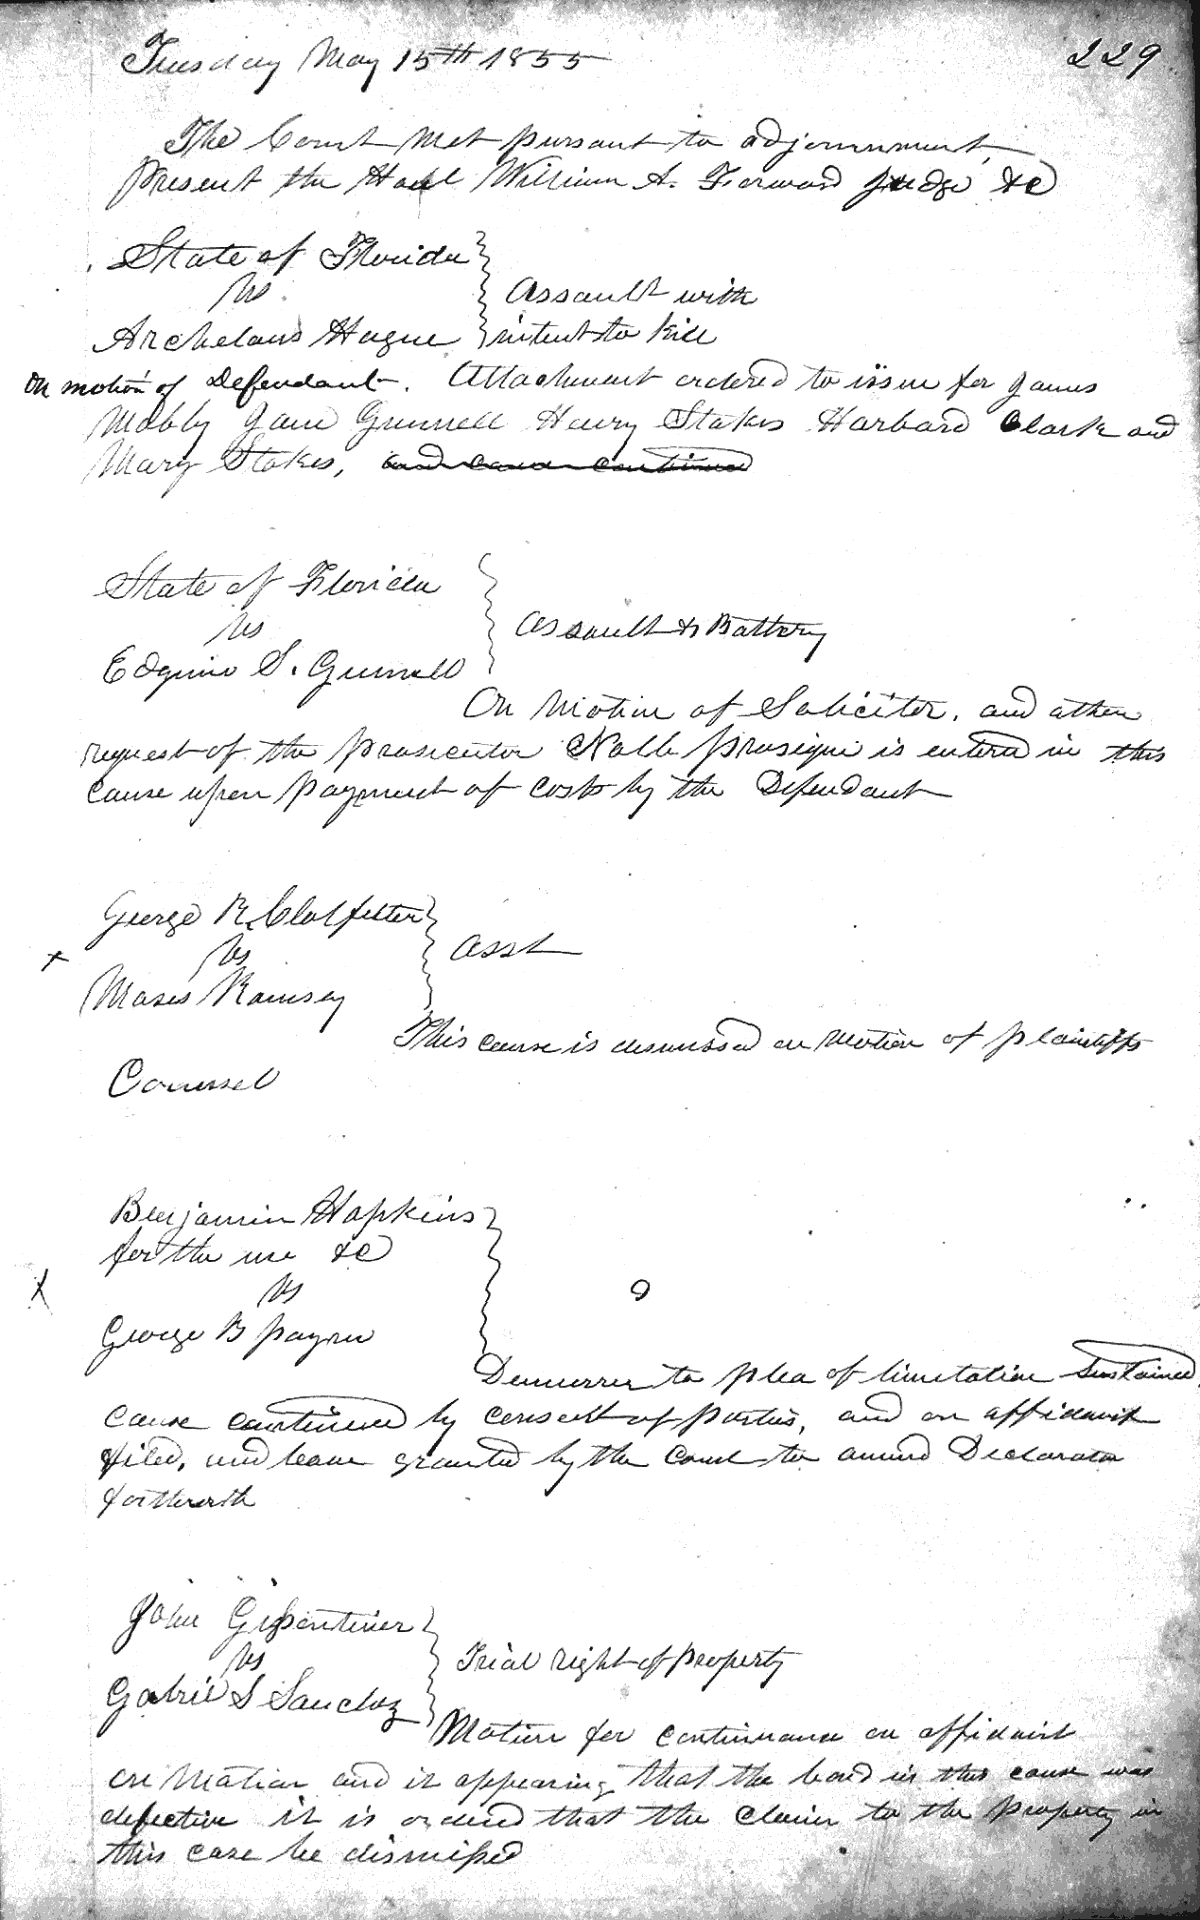 Tuesday May 15th 1855 229
The Court Met pursuant to adjournment,
Present the Honl William A. Forward Judge &c
State of Florida
vs Assault with
Archelaus Hague intent to Kill
On motion of Defendant. Attachment ordered to issue for James
Mobly Jane Gunnell Henry Stokes Harbard Clark and
Mary Stokes, and cause continued
State of Florida
vs Assault & Battery
S. Gunnell
On Motion of Soliciter, and at the
request of the prosecutor Nolle prosiqui is entered in this
cause upon payment of costs by the Defendant
George R. Clotfelter
x vs Asst
Moses Ramsey
This cause is dismissed on Motion of plaintiffs
Counsel
Benjamin Hopkins
for the use &c
x vs
George B Payne
Demurrer to plea of limitation Sustained,
cause continued by consent of parties, and on affidavit
filed, and leave granted by the Court to amend Declaration
forthwith
John Gispentiner
vs Trial right of property
Gabriel S Sanchez
Motion for continuance on affidavit
on Motion and it appearing that the bond in this cause was
defective it is ordered that the claim to the property in
this case be dismissed